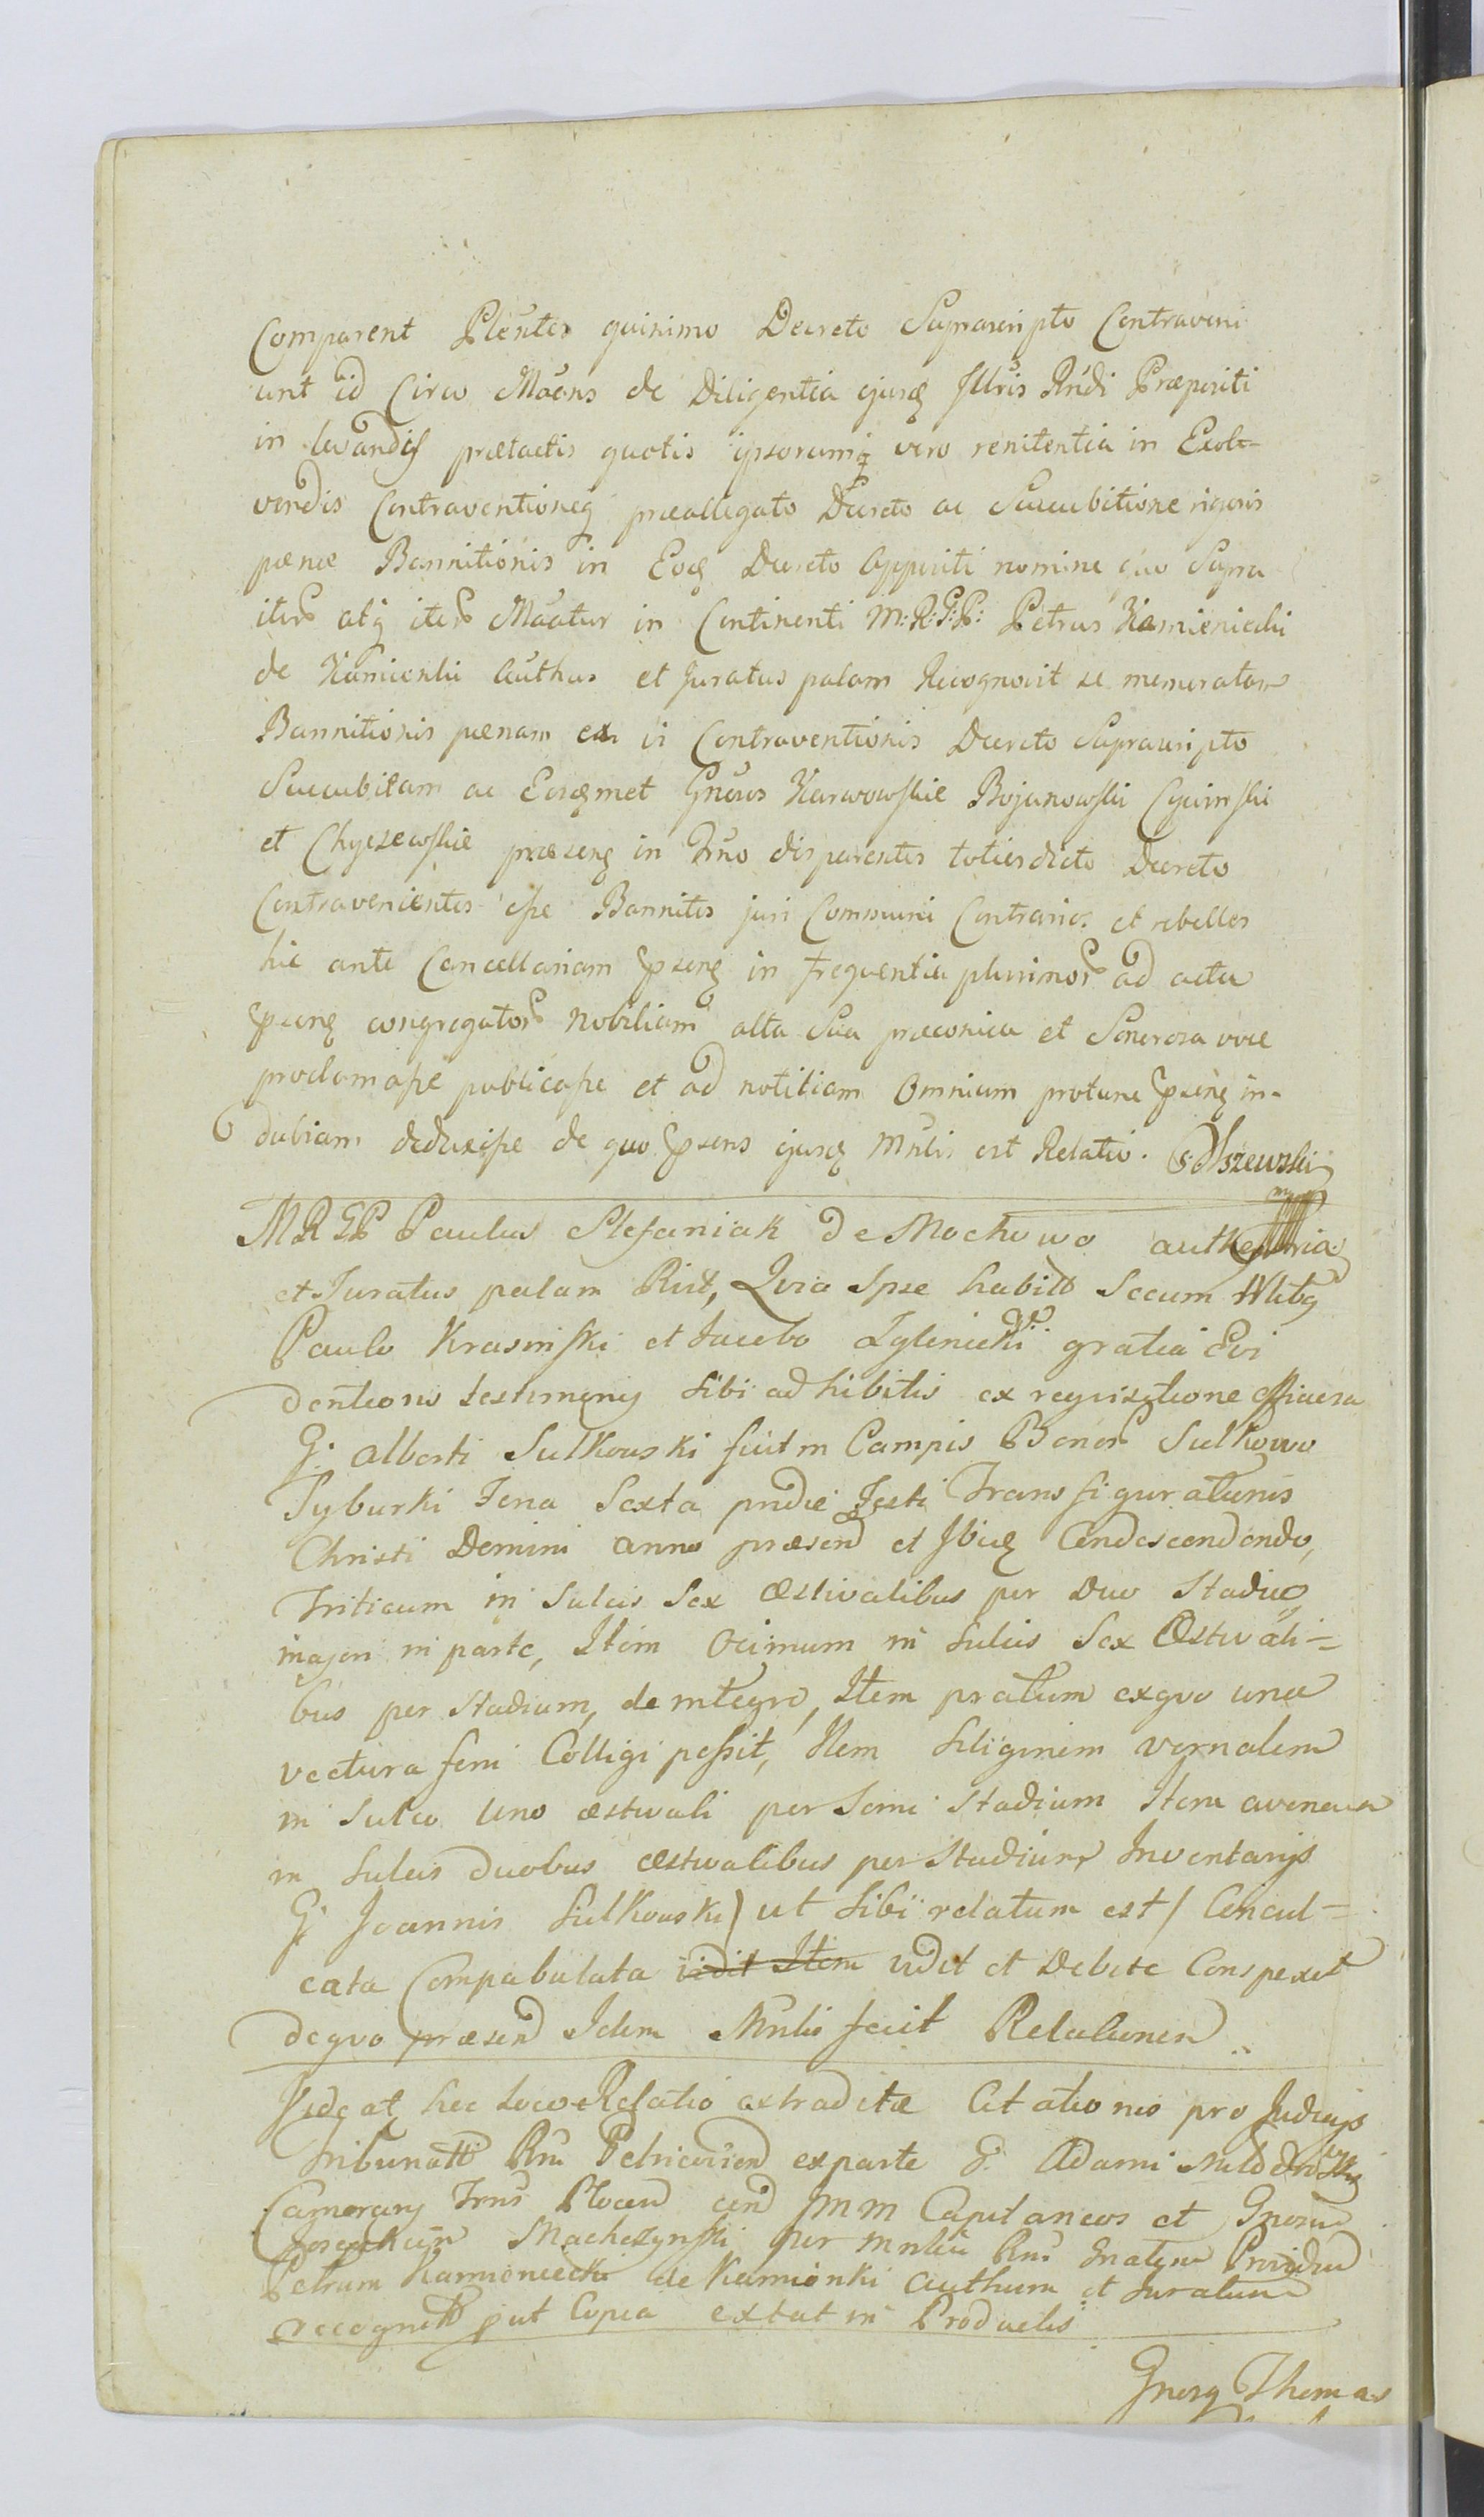 Comparent Plentes quinimo Decreto Suprascripto Contraveni
unt id Circo Maens de Diligentia ejusq Illris Rndi Præpositi
in levandis prætactis quotis ipsorumq vero renitentia in Exol-
vendis Contraventioneq præallegato Decreto ac Succubitione rigoris
pænæ Bannitionis in Eoq Decreto Appositi nomine quo Supra
iter atq iter Maatur in Continenti M:R:G:P: Petrus Kamieniecki
de Kamionki Authus et Juratus palam Recognovit se memoratam
Bannitionis pænam ex vi Contraventionis Decreto Suprascripto
Succubitam ac Eosqmet Gnosos Karwowskie Bojanowski Cycimski
et Chyczewskie præsenq in Trno disparentes totiesdicto Decreto
Contravenientes esse Bannitos juri Communi Contrarios et rebelles
hic ante Cancellariam psenq in frequentia plurimor ad acta
psenq congregator Nobilium alta Sua præconica et Sonorosa voce
proclamasse publicasse et ad notitiam Omnium protunc psenq in-
dubiam deduxisse de quo psens ejusq Mnlis est Relatio.
MRGP Paulus Stefaniak de Mochowo authen
et Juratus palam Rirt, Quia Ipse habitt Secum Nlibq
Paulo Krasinski et Jacobo Zglenicki gratia Evi
dentioris testimonij Sibi adhibitis ex requisitione officiosa
G. Alberti Sulkouski fuit in Campis Bonor Sulkowo
Syburki Feria Sexta pridie Festi Transfigurationis
Christi Domini anno præsend et Ibidq Condescendendo,
Triticum in Sulcis Sex Æstivalibus per Duo Stadia
majori in parte, Item Ocimum in Sulcis Sex Æstivali=
bus per Stadium, de integro, Item pratum exquo una
vectura feni Colligi possit, Item Siliginem vernalem
in Sulco Uno æstivali per Semi Stadium Item avenam
in Sulcis duobus æstivalibus per Stadium Inventarijs
G. Joannis Sulkouski) ut Sibi relatum est/ Concul=
cata Compabulata vidit Item vidit et Debite Conspexit
dequo præsend Idem Mnlis fecit Relationem
Videat hec Loco Relatio extraditæ Citationis pro Judicijs
Tribunalb Rni Petricovien exparte G. Adami
Camerarij Trns Plocen con JMM Capitaneos et Gnosum
Josephum Machczynski per mnlem Rni Gnalem Providum
Petrum Kamieniecki de Kamionki Authum et Juratum
recognitt put Copia extat in Productis
Gnosq Thomas